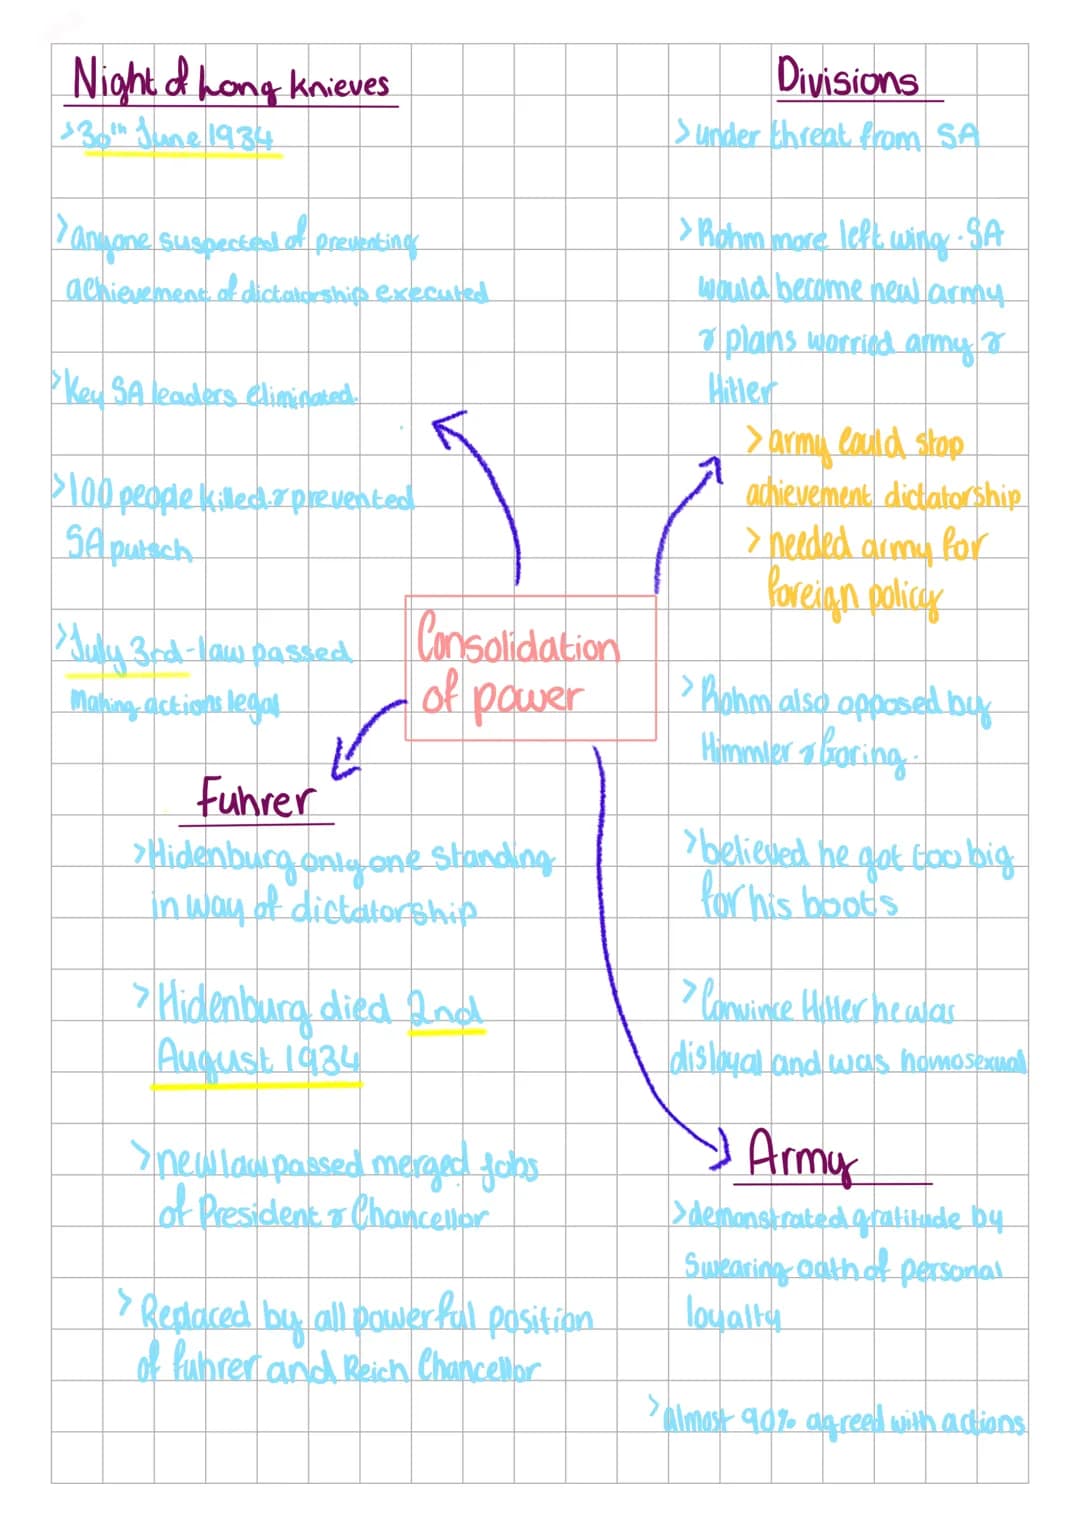 Night of Long Knieves
>30th June 1934
>anyone suspected of preventing
achievement of dictatorship executed
>Key SA leaders eliminated.
>100 people killed & prevented
SA putsch
>July 3rd - law passed
Making actions legal
Divisions
>under threat from SA
>Rohm more left wing. SA
would become new army
& plans worried army &
Hitler
>army could stop
achievement dictatorship
>needed army for
foreign policy
>Rohm also opposed by
Himmler & Goring.
>believed he got too big
for his boots
>Convince Hitler he was
disloyal and was homosexual
Consolidation
of power
Fuhrer
>Hidenburg only one standing
in way of dictatorship
>Hidenburg died 2nd
August 1934
>new law passed merged jobs
of President & Chancellor
>Replaced by all powerful position
of fuhrer and Reich Chancellor
Army
>demonstrated gratitude by
swearing oath of personal
loyalty
>almost 90% agreed with actions